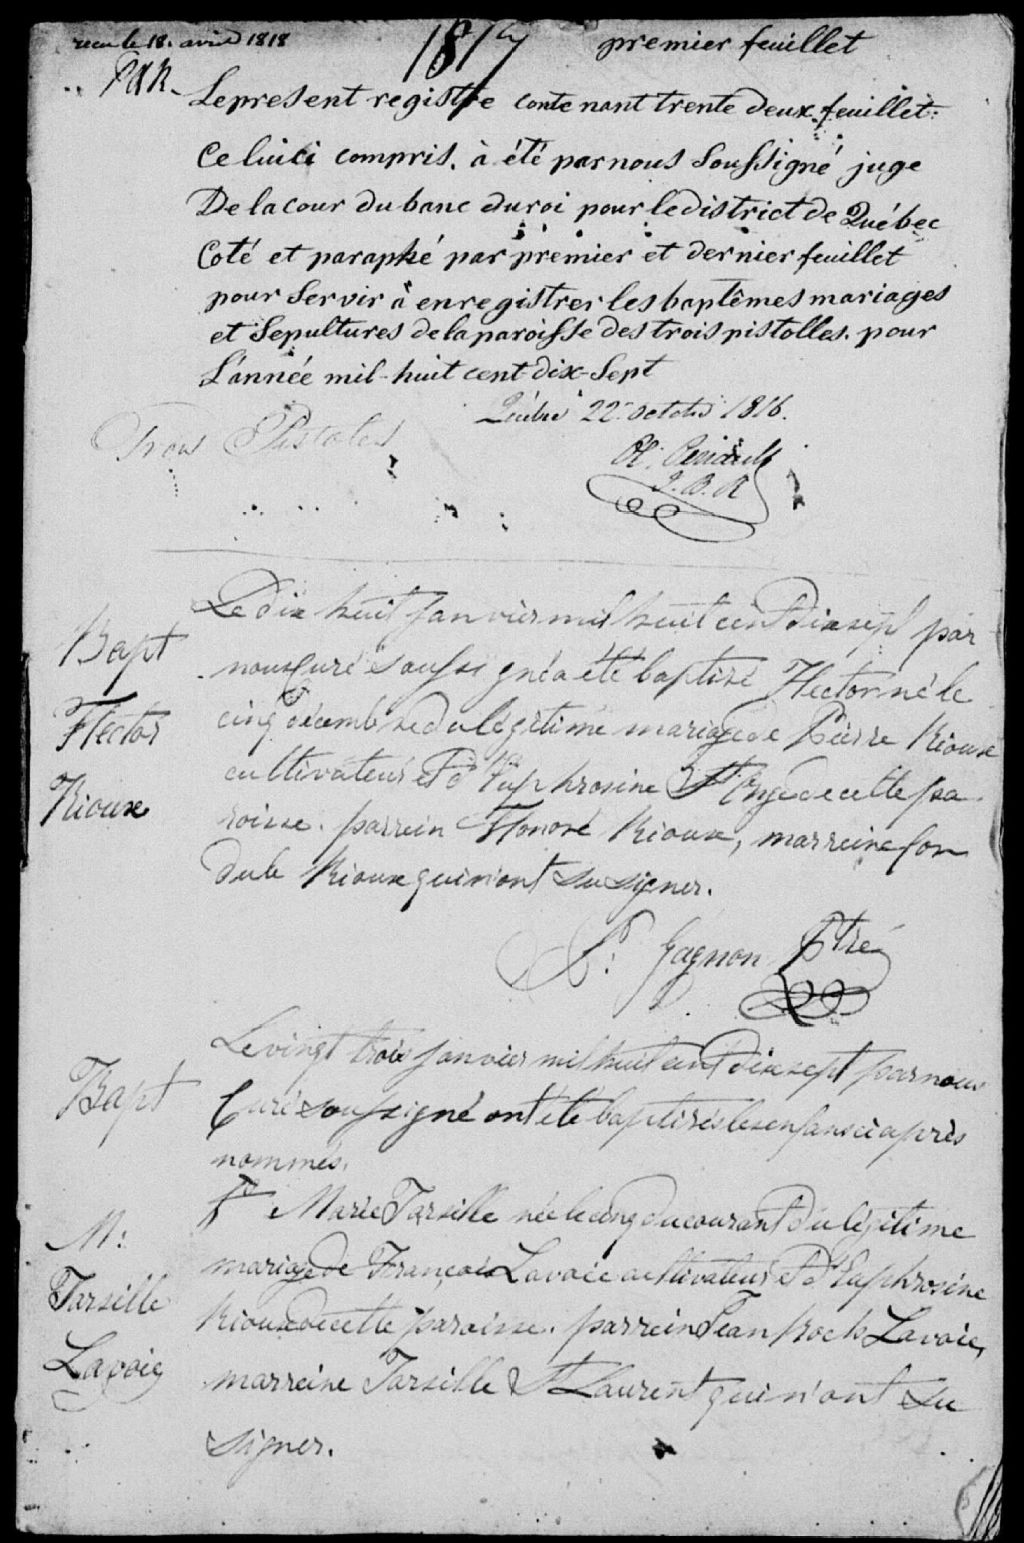 recu le 18. avril 1818
1817
premier feuillet
Le present registre contenant trente deux feuillet:
Celuici compris. à été par nous Soussigné juge
De la cour du banc du roi pour le district de Québec
Coté et paraphé par premier et dernier feuillet
pour Servir à enregistrer les baptêmes mariages
et Sepultures de la paroisse des trois pistolles. pour
L'année mil-huit cent-dix-Sept
Québec 22 octobre 1816.
Trois Pistoles
Ol: Perrault
J. B. R
Le dix huit janvier mil huit cent dix sept par
Bapt
nous Curé soussigné a été baptisé Hector né le
Hector
cinq décembre du légitime mariage de Pierre Rioux
cultivateur et d'Euphrosine St Onge de cette pa
Rioux
roisse. parrein Honoré Rioux, marreine
Rioux qui n'ont su signer.
Gagnon Ptre
Le vingt trois janvier mil huit cent dix sept par nous
Bapt
Curé soussigné ont été baptisés les enfans ci après
nommés.
1o Marie Tarsille née le cinq du courant du légitime
M:
mariage de François Lavoie cultivateur et d'Euphrosine
Tarsille
Rioux de cette paroisse. parrein Jean Lavoie,
Lavoie
marreine Tarsille St Laurent qui n'ont su
signer.